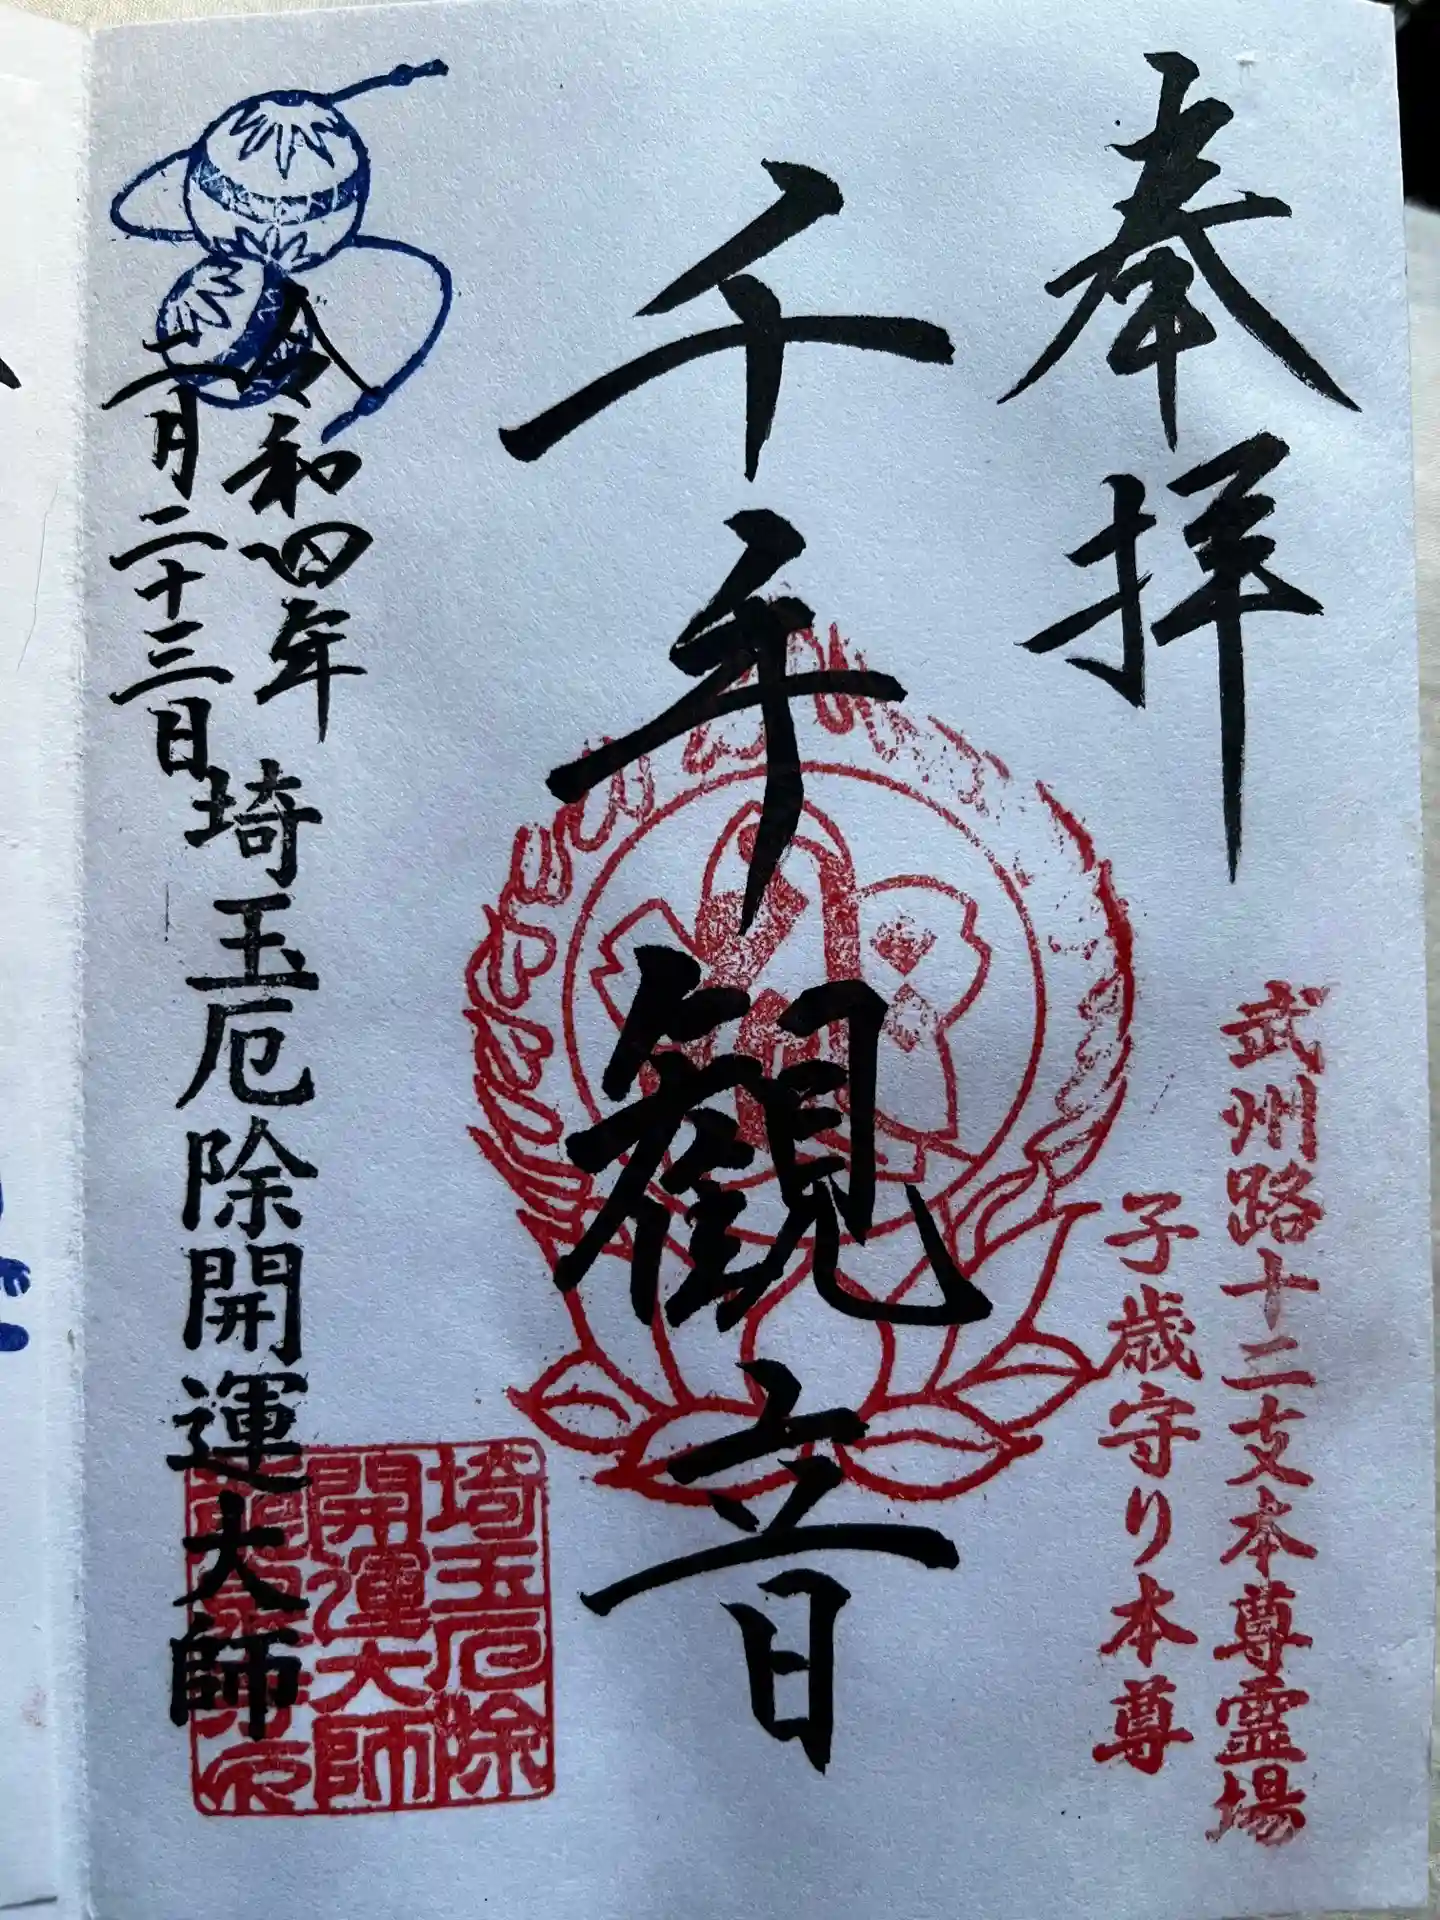 奉拝
武州路十二支本尊霊場
子歳守り本尊
千手観音
令和四年
二月二十三日
埼玉厄除開運大師
埼玉厄除
開運大師